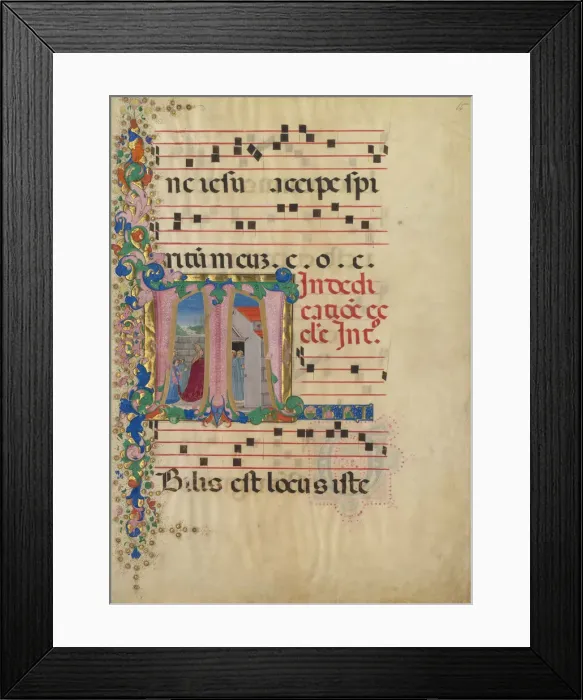 ne iesu accipe spi
ritũ meuz. e. o. e.
In dedi
catiõe ec
cl'e Int°.
T
Bilis est locus iste